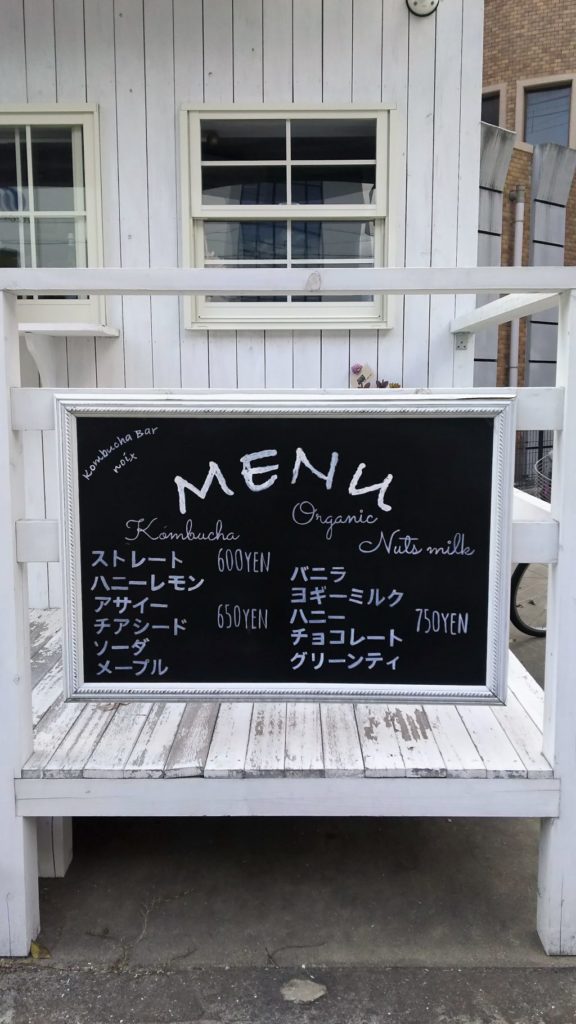 Kombucha Bar
noix
MENU
Kombucha
ストレート 600YEN
ハニーレモン
アサイー
チアシード 650YEN
ソーダ
メープル
Organic
Nuts milk
バニラ
ヨギーミルク
ハニー
チョコレート 750YEN
グリーンティ